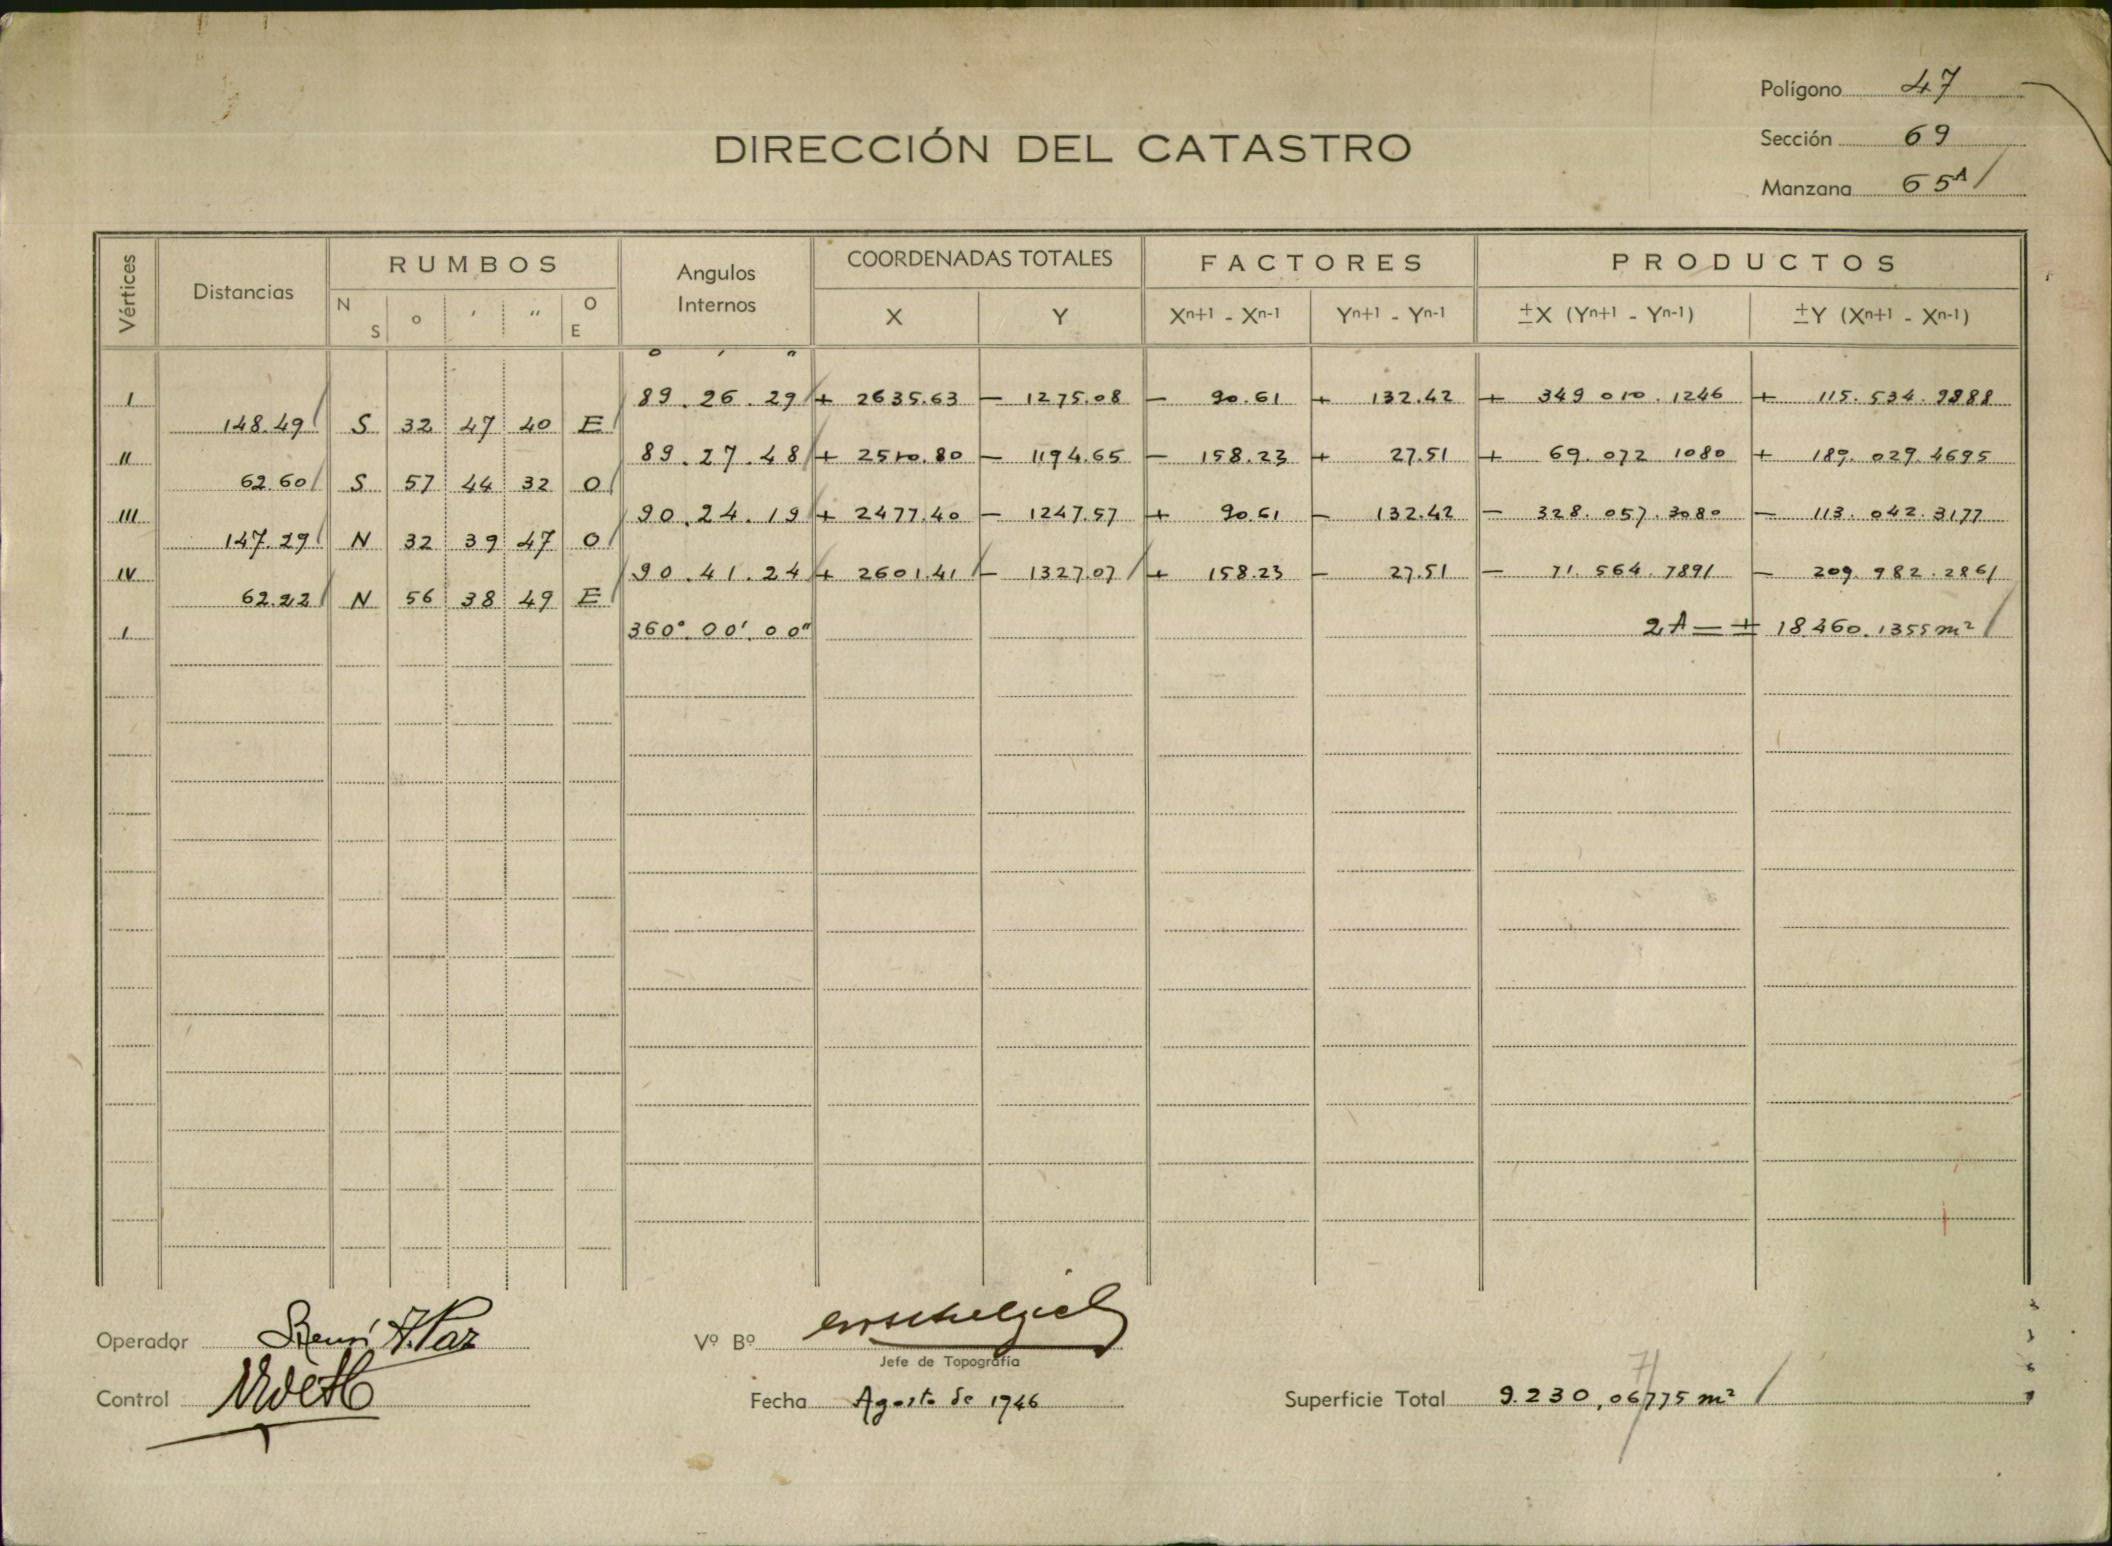 Polígono 47
DIRECCIÓN DEL CATASTRO
Sección 69
Manzana 65A
Vértices Distancias RUMBOS N S o ′ ″ O E Angulos Internos COORDENADAS TOTALES X Y FACTORES Xn+1 - Xn-1 Yn+1 - Yn-1 PRODUCTOS ±X (Yn+1 - Yn-1) ±Y (Xn+1 - Xn-1)
o ′ ″
I 89.26.29 + 2635.63 - 1275.08 - 90.61 + 132.42 + 349 010.1246 + 115.534.9988
148.49 S 32 47 40 E
II 89.27.48 + 2510.80 - 1194.65 - 158.23 + 27.51 + 69.072 1080 + 189.029.4695
62.60 S 57 44 32 O
III 90.24.19 + 2477.40 - 1247.57 + 90.61 - 132.42 - 328.057.3080 - 113.042.3177
147.29 N 32 39 47 O
IV 90.41.24 + 2601.41 - 1327.07 + 158.23 - 27.51 - 71.564.7891 - 209.982.2861
62.22 N 56 38 49 E
I 360°.00′.00″ 2A = + 18460.1355 m²
Operador A. Paz
Vº Bº
Jefe de Topografía
Control
Fecha Agosto de 1946
Superficie Total 9.230,06775 m²